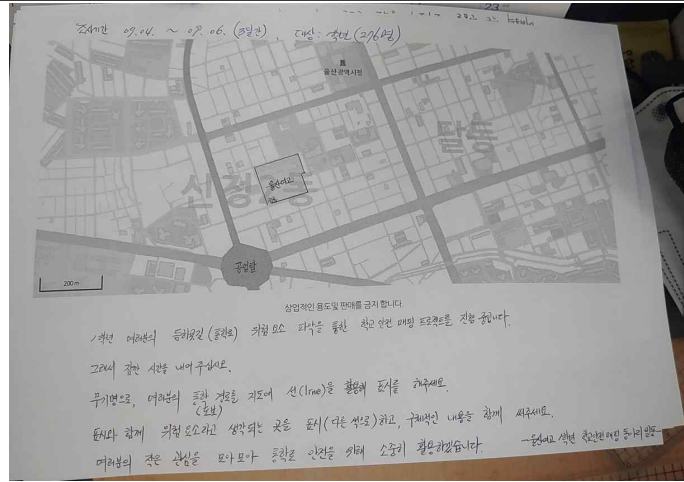 조사기간 09.04. ~ 09.06. (3일간), 대상: 1학년 (276명)
울산광역시청
달동
신정2동
울산여고
공업탑
200 m
상업적인 용도및 판매를 금지 합니다.
1학년 여러분의 등하굣길 (통학로) 위험요소 파악을 통한 학교 안전 매핑 프로젝트를 진행 중입니다.
그래서 잠깐 시간을 내어 주십시오.
무기명으로, 여러분의 통학 경로를 지도에 선(line)을 활용해 표시를 해주세요.
(도보)
표시와 함께 위험 요소라고 생각되는 곳을 표시(다른 색으로)하고, 구체적인 내용을 함께 써주세요.
여러분의 작은 관심을 모아모아 통학로 안전을 위해 소중히 활용하겠습니다.
-울산여고 1학년 학교안전매핑 동아리 일동-